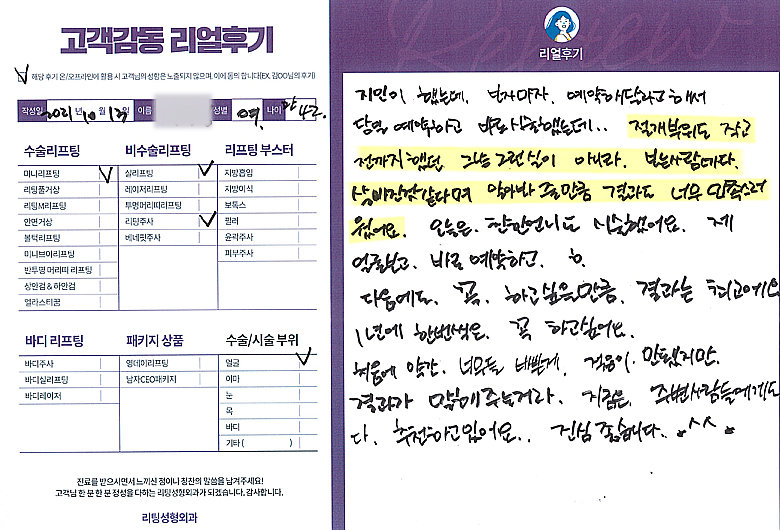 고객감동 리얼후기
해당 후기 온/오프라인에 활용 시 고객님의 성함은 노출되지 않으며, 이에 동의 합니다(EX. 김OO님의 후기)
작성일 2021년 10월 13일 이름 성별 여. 나이 만 42.
수술리프팅 비수술리프팅 리프팅 부스터
미니리프팅 실리프팅 지방흡입
리팅풀거상 레이저리프팅 지방이식
리팅M리프팅 투명머리띠리프팅 보톡스
안면거상 리팅주사 필러
볼턱리프팅 베네핏주사 윤곽주사
미니브이리프팅 피부주사
반투명 머리띠 리프팅
상안검 & 하안검
엘라스티꿈
바디 리프팅 패키지 상품 수술/시술 부위
바디주사 영데이리프팅 얼굴
바디실리프팅 남자CEO패키지 이마
바디레이저 눈
목
바디
기타 ( )
진료를 받으시면서 느끼신 점이나 칭찬의 말씀을 남겨주세요!
고객님 한 분 한 분 정성을 다하는 리팅성형외과가 되겠습니다. 감사합니다.
리팅성형외과
Review
리얼후기
지인이 했는데, 보자마자, 예약해달라고 해서
당일 예약하고 바로 시술했는데.. 절개부위도 작고
전까지했던 그냥 그런식이 아니라. 보는사람마다.
살빠진것같다며 알아봐 줄만큼 결과도 너무 만족스러
웠어요. 오늘은. 친한언니도 시술했어요. 제
얼굴보고. 바로 예약하고.
다음에도. 꼭. 하고싶은만큼. 결과는 최고예요
1년에 한번씩은. 꼭 하고싶어요.
처음에 약간. 너무들 바쁘게. 적응이. 안됐지만.
결과가 말해주는거라. 지금은. 주변사람들에게도
다. 추천하고있어요.. 진심 좋습니다. ^^